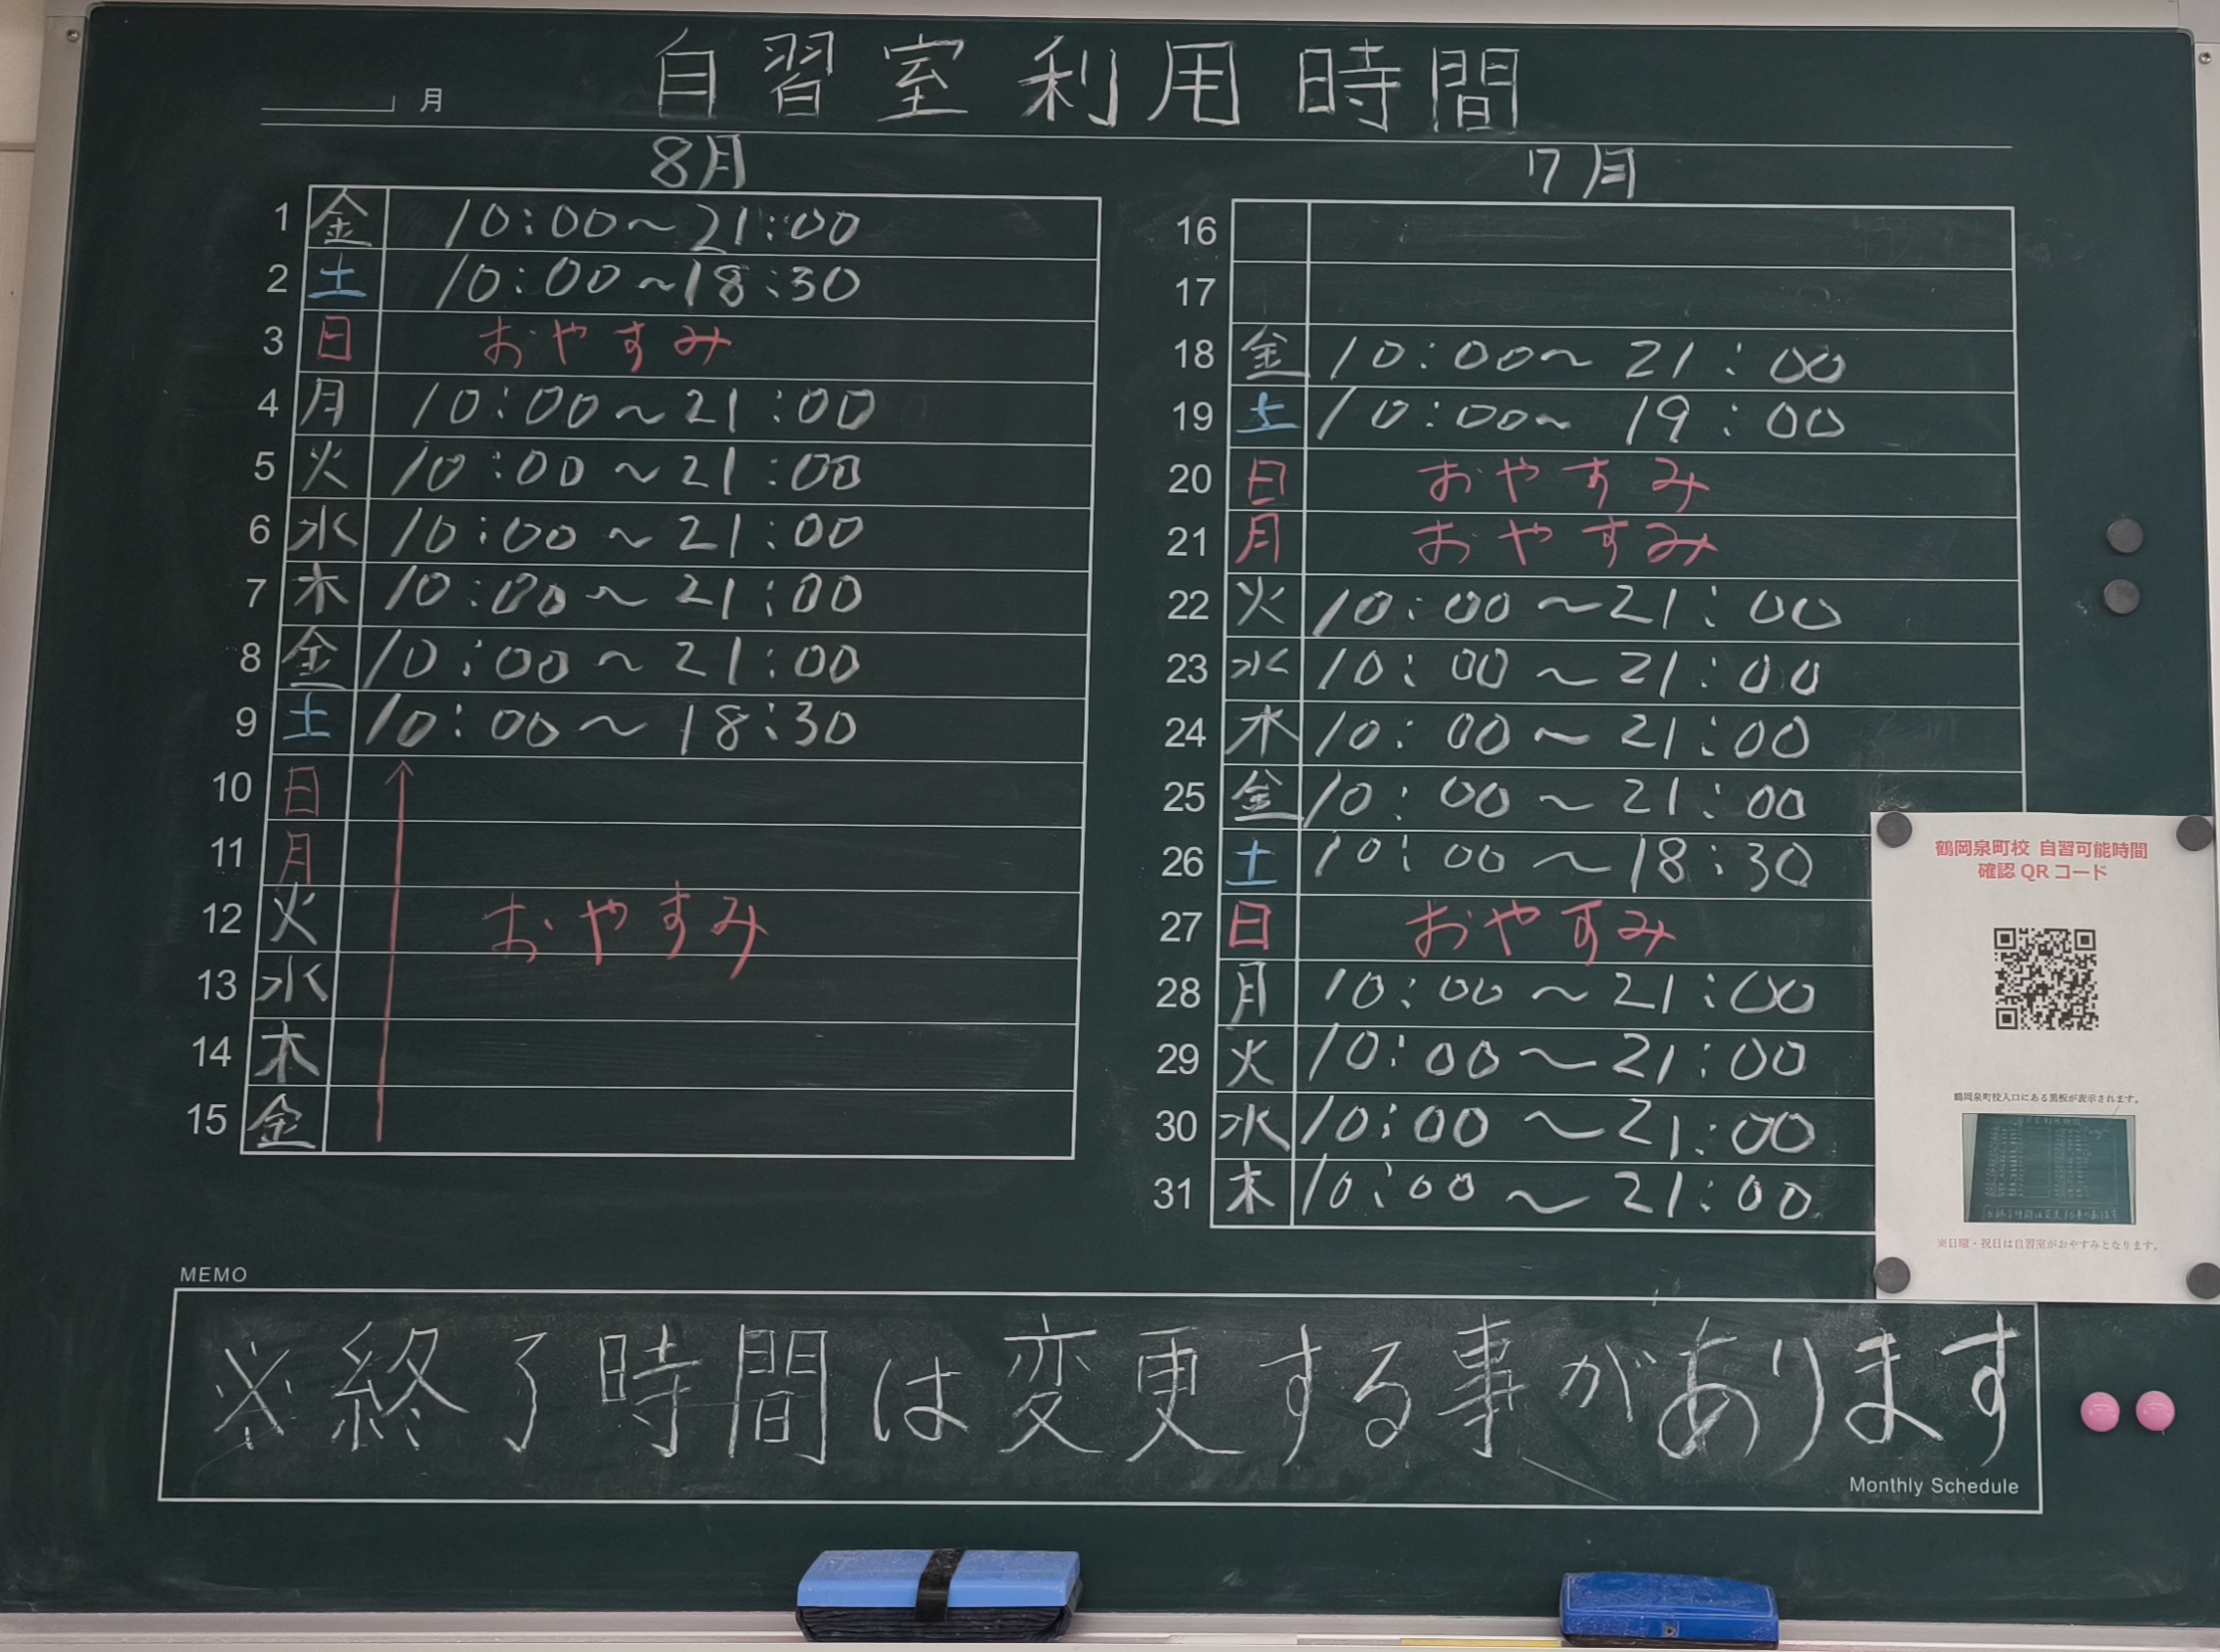 自習室利用時間
月
8月
1 金 10:00~21:00
2 土 10:00~18:30
3 日 おやすみ
4 月 10:00~21:00
5 火 10:00~21:00
6 水 10:00~21:00
7 木 10:00~21:00
8 金 10:00~21:00
9 土 10:00~18:30
10 日
11 月
12 火 おやすみ
13 水
14 木
15 金
7月
16
17
18 金 10:00~21:00
19 土 10:00~19:00
20 日 おやすみ
21 月 おやすみ
22 火 10:00~21:00
23 水 10:00~21:00
24 木 10:00~21:00
25 金 10:00~21:00
26 土 10:00~18:30
27 日 おやすみ
28 月 10:00~21:00
29 火 10:00~21:00
30 水 10:00~21:00
31 木 10:00~21:00
鶴岡泉町校 自習可能時間
確認 QR コード
鶴岡泉町校入口にある黒板が表示されます。
※日曜・祝日は自習室がおやすみとなります。
MEMO
※終了時間は変更する事があります
Monthly Schedule